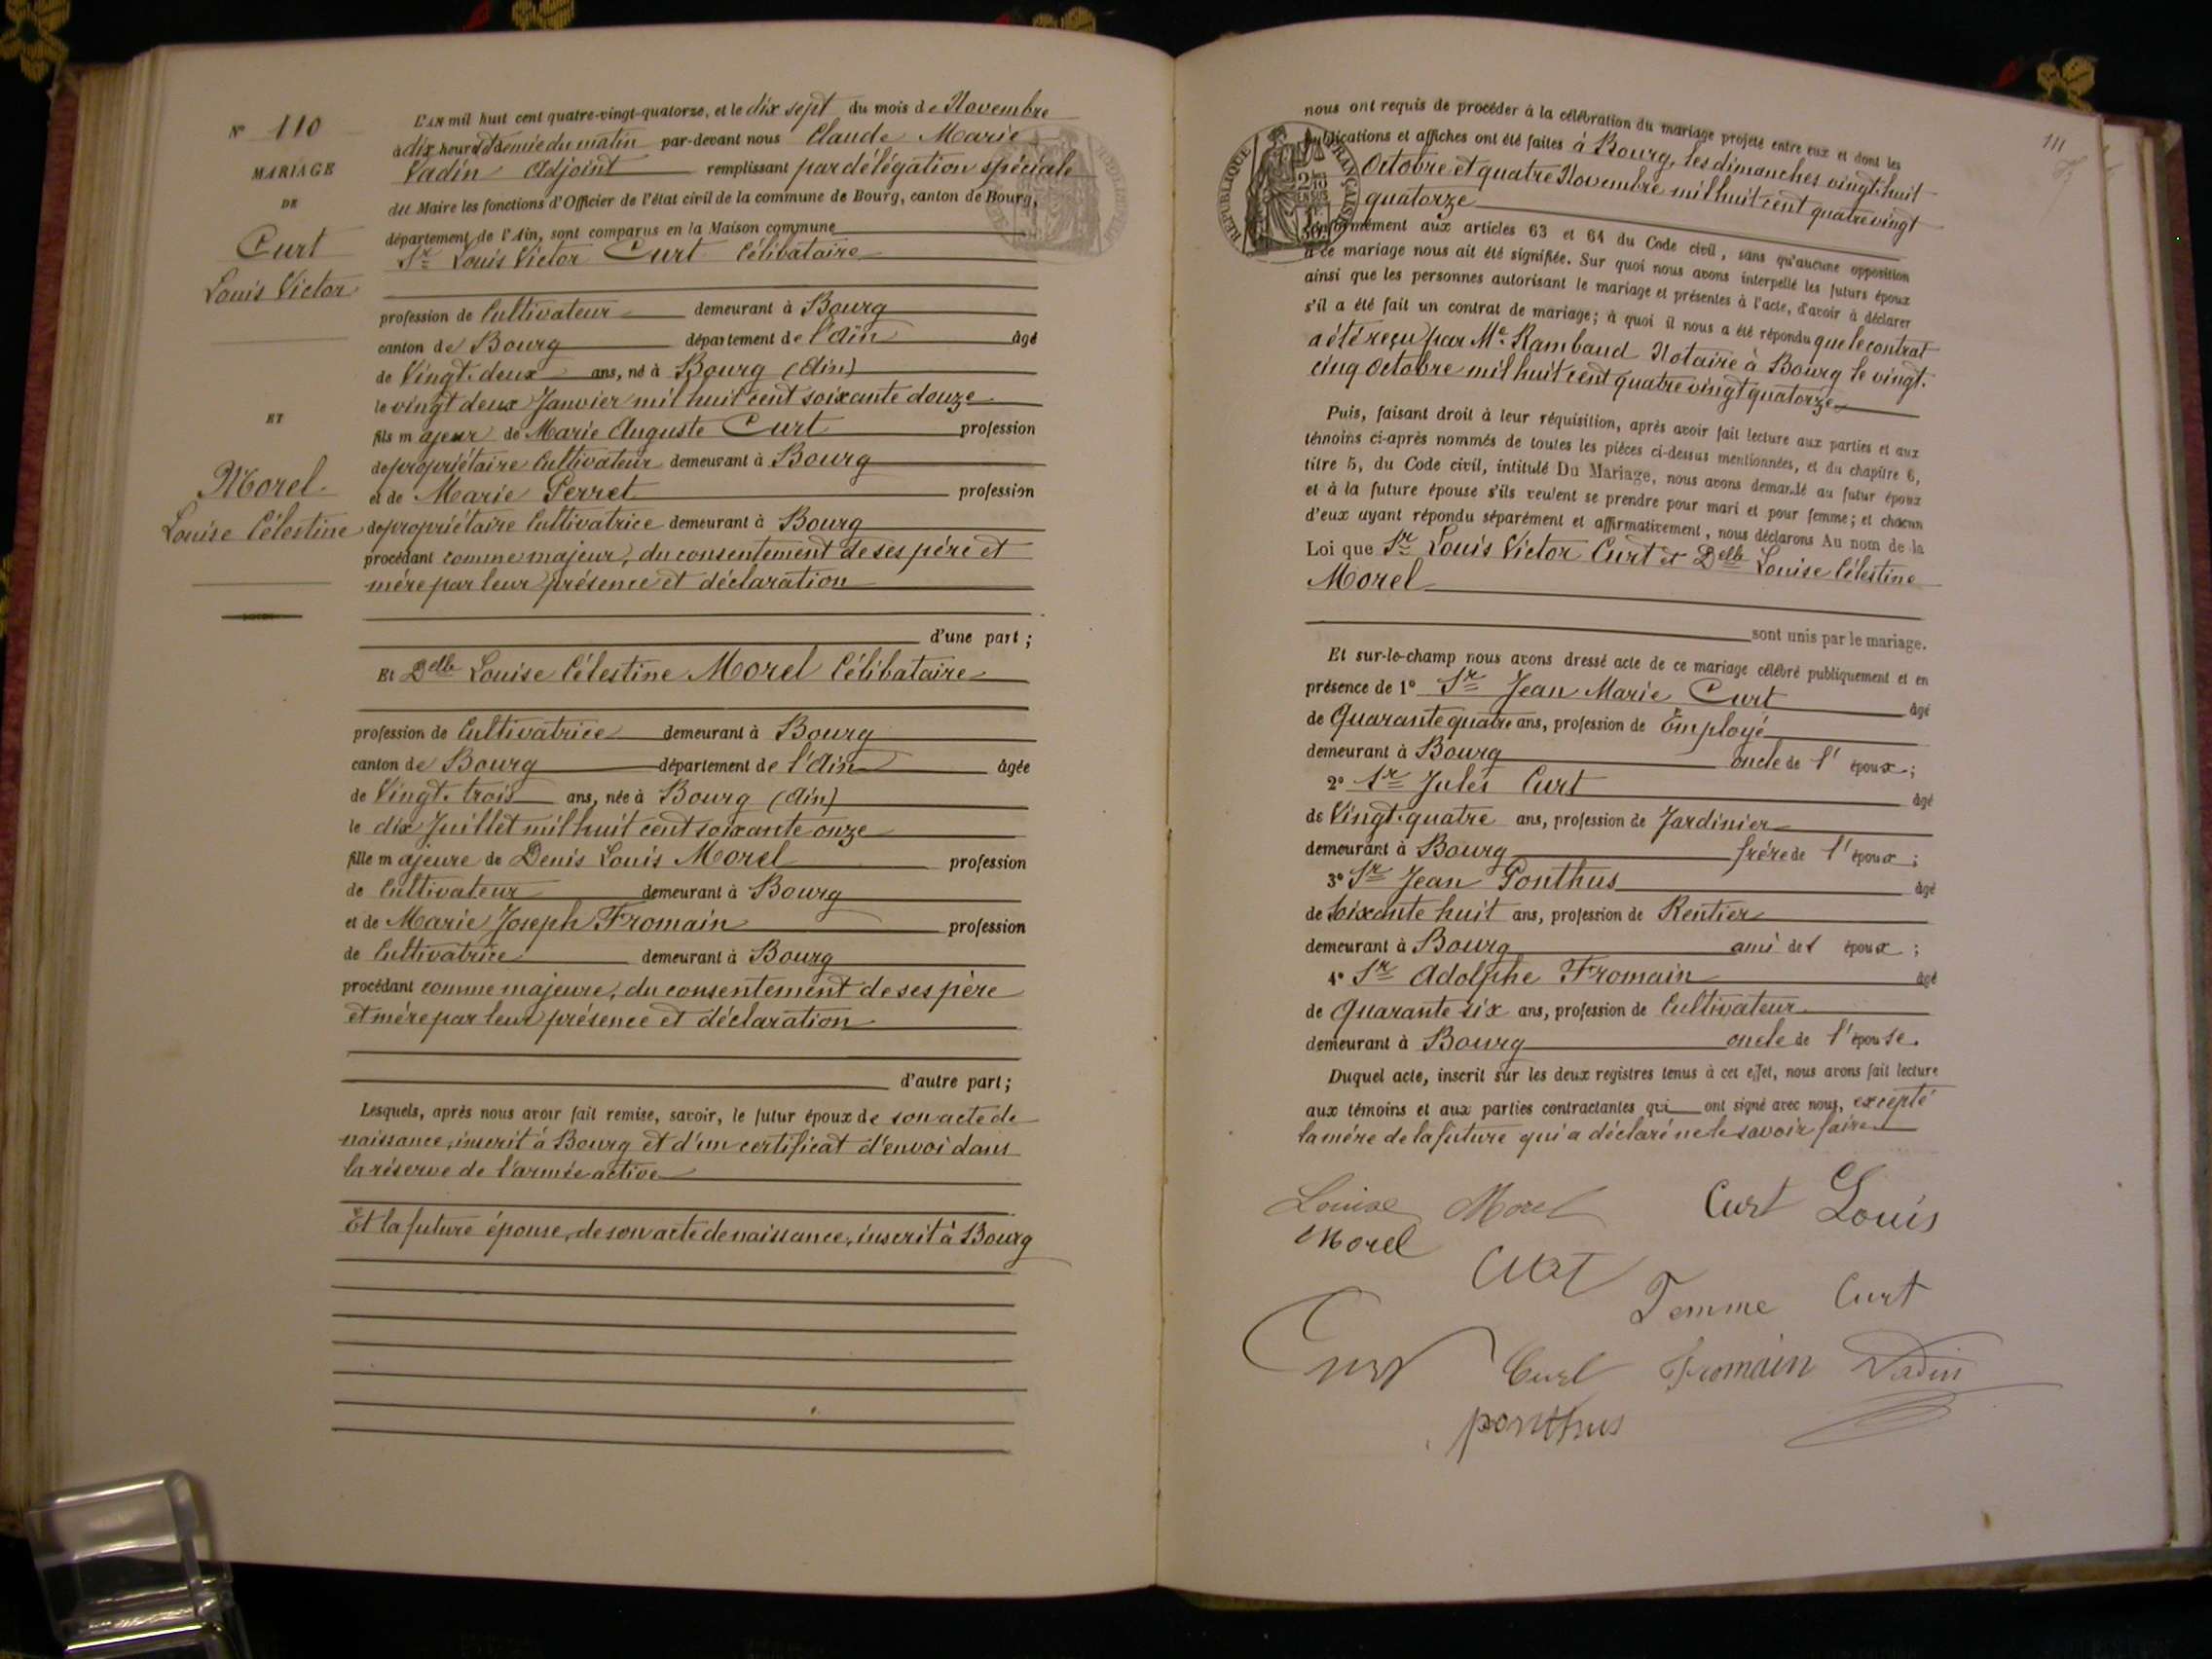 N° 110
MARIAGE
DE
Curt
Louis Victor
ET
Morel
Louise Célestine
L'AN mil huit cent quatre-vingt-quatorze, et le dix sept du mois de Novembre
à dix heures et demie du matin par-devant nous Claude Marie
Vadin Adjoint remplissant par délégation spéciale
du Maire les fonctions d'Officier de l'état civil de la commune de Bourg, canton de Bourg,
département de l'Ain, sont comparus en la Maison commune
Sr Louis Victor Curt Célibataire
profession de Cultivateur demeurant à Bourg
canton de Bourg département de l'Ain âgé
de Vingt-deux ans, né à Bourg (Ain)
le vingt deux Janvier mil huit cent soixante douze
fils majeur de Marie Auguste Curt profession
de propriétaire Cultivateur demeurant à Bourg
et de Marie Perret profession
de propriétaire Cultivatrice demeurant à Bourg
procédant comme majeur, du consentement de ses père et
mère par leur présence et déclaration
d'une part ;
Et Delle Louise Célestine Morel Célibataire
profession de Cultivatrice demeurant à Bourg
canton de Bourg département de l'Ain âgée
de Vingt-trois ans, née à Bourg (Ain)
le dix Juillet mil huit cent soixante onze
fille majeure de Denis Louis Morel profession
de Cultivateur demeurant à Bourg
et de Marie Joseph Fromain profession
de Cultivatrice demeurant à Bourg
procédant comme majeure, du consentement de ses père
et mère par leur présence et déclaration
d'autre part ;
Lesquels, après nous avoir fait remise, savoir, le futur époux de son acte de
naissance, inscrit à Bourg et d'un certificat d'envoi dans
la réserve de l'armée active
Et la future épouse, de son acte de naissance, inscrit à Bourg
111
RÉPUBLIQUE FRANÇAISE
nous ont requis de procéder à la célébration du mariage projeté entre eux et dont les
publications et affiches ont été faites à Bourg, les dimanches vingt-huit
Octobre et quatre Novembre mil huit cent quatre vingt
quatorze
conformément aux articles 63 et 64 du Code civil, sans qu'aucune opposition
à ce mariage nous ait été signifiée. Sur quoi nous avons interpellé les futurs époux
ainsi que les personnes autorisant le mariage et présentes à l'acte, d'avoir à déclarer
s'il a été fait un contrat de mariage; à quoi il nous a été répondu que le contrat
a été reçu par Me Rambaud Notaire à Bourg le vingt-
cinq Octobre mil huit cent quatre vingt quatorze
Puis, faisant droit à leur réquisition, après avoir fait lecture aux parties et aux
témoins ci-après nommés de toutes les pièces ci-dessus mentionnées, et du chapitre 6,
titre 5, du Code civil, intitulé Du Mariage, nous avons demandé au futur époux
et à la future épouse s'ils veulent se prendre pour mari et pour femme; et chacun
d'eux ayant répondu séparément et affirmativement, nous déclarons Au nom de la
Loi que Sr Louis Victor Curt et Delle Louise Célestine
Morel
sont unis par le mariage.
Et sur-le-champ nous avons dressé acte de ce mariage célébré publiquement et en
présence de 1° Sr Jean Marie Curt âgé
de Quarante quatre ans, profession de Employé
demeurant à Bourg oncle de l'époux ;
2° Sr Jules Curt âgé
de Vingt-quatre ans, profession de Jardinier
demeurant à Bourg frère de l'époux ;
3° Sr Jean Ponthus âgé
de Soixante huit ans, profession de Rentier
demeurant à Bourg ami des époux ;
4° Sr Adolphe Fromain âgé
de Quarante six ans, profession de Cultivateur
demeurant à Bourg oncle de l'épouse.
Duquel acte, inscrit sur les deux registres tenus à cet effet, nous avons fait lecture
aux témoins et aux parties contractantes qui ont signé avec nous, excepté
la mère de la future qui a déclaré ne le savoir faire
Louise Morel Curt Louis
Morel
Curt
Femme Curt
Curt Curt Fromain Vadin
ponthus